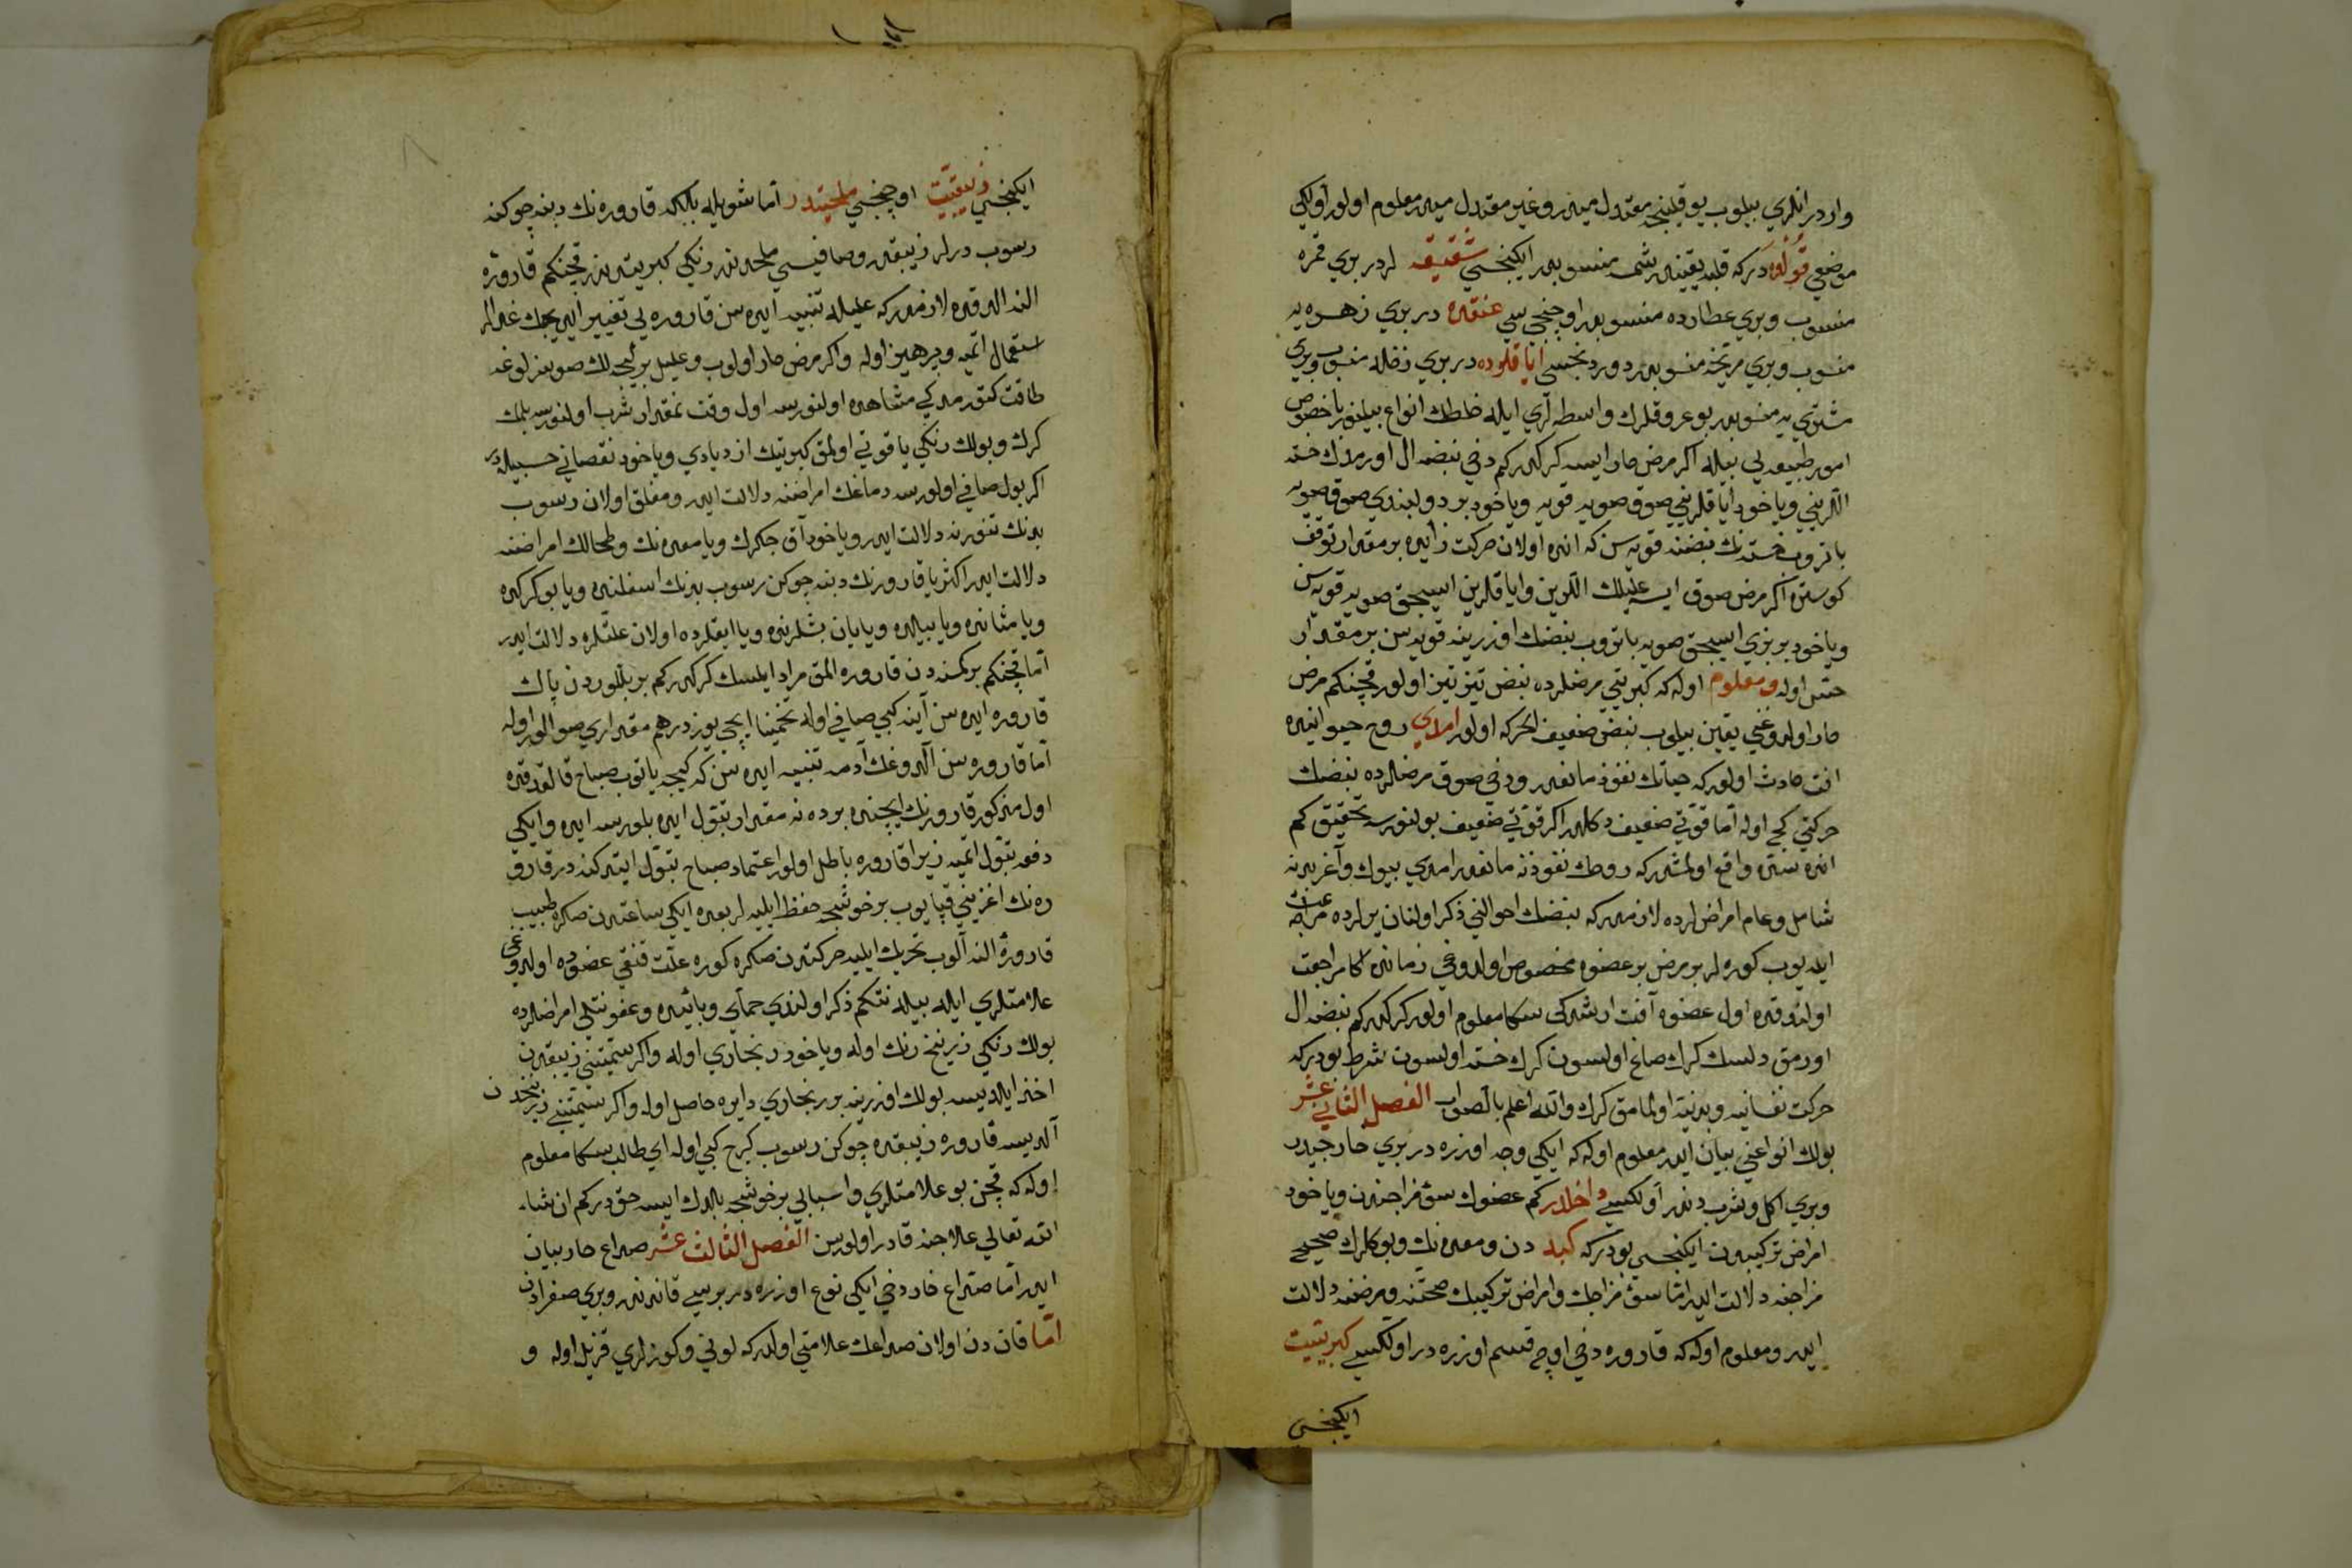 واردر انلري بيلوب يوقلينجه معتدل ميدر وغير معتدل ميدر معلوم اولور اولكي
موضعي قولده دركه قلبه يقيندر شمسه منسوبدر ايكنجيسي شقيقه لردر بري قمره
منسوب وبري عطارده منسوبدر اوچنجي سي عنقده در بري زهره يه
منسوب وبري مريخه منسوبدر دوردنجسي اياقلوده در بري زحله منسوب وبري
مشتري يه منسوبدر بو عروقلرك واسطه لري ايله خلطك انواع بيلنور باخصوص
امور طبيعه يي بيله اكر مرض حار ايسه كركدركم دخي نبضه ال اورمزدن خسته
اللريني وياخود اياقلريني صوق صويه قويه وياخود بر دولبندي صوق صويه
باتروب خسته نك نبضنه قويه سن كه انده اولان حركت زايده بر مقدار توقف
كوستره اكر مرض صوق ايسه عليلك اللرين واياقلرين ايسيجق صويه قويه سن
وياخود بر بزي ايسيجق صويه باتروب نبضنك اوزرينه قويه سن بر مقدار
حتى اوله ومعلوم اوله كه كبريتي مرضلرده نبض تيز تيز اولور قچنكم مرض
حار اولدوغي يقين بيلوب نبض ضعيف الحركه اولور امدي روح حيوانيده
افت حادث اولور كه حياتك نفوذ مانعدر ودخي صوق مرضلرده نبضك
حركتي كج اوله اما قوتي ضعيف دكلدر اكر قوتي ضعيف بولنورسه تحقيق كم
انده سده واقع اولمشدركه روحك نفوذنه مانعدر امدي بيوك وآغر بدنه
شامل وعام امراضلرده لازمدركه نبضك احوالني ذكر اولنان يرلرده مراجعت
ايديوب كوره لر بو مرض بر عضوه مخصوص اولدوغي زمانده اكا مراجعت
اولندوقده اول عضوه آفت ارشدكي سكا معلوم اولور كركدركم نبضه ال
اورمق دلسك كرك صاغ اولسون كرك خسته اولسون شرط بودركه
حركت نفسانيه وبدنيه اولمامق كرك والله اعلم بالصواب الفصل الثاني عشر
بولك انواعني بيان ايدر معلوم اوله كه ايكي وجه اوزره در بري خارجيدر
وبري اكل وشرب دندر اولكيسي داخلدر كم عضوك سوء مزاجندن وياخود
امراض تركيبدن ايكنجسي بودركه كبد دن ومعده نك وبوكلرك صحيحي
مزاجنه دلالت ايدر اما سوء مزاجك وامراض تركيبك صحتنه ومرضنه دلالت
ايدر ومعلوم اوله كه قاروره دخي اوچ قسم اوزره در اولكيسي كبريتيت
ايكنجسي
ايكنجسي زيبقيت اوچنجسي ملحيتدر اما شويله بلكه قاروره نك دبنه چوكنه
رسوب ديرلر زيبقدر وصافيسي ملحدندر رنكي كبريتدندر قچنكم قاروره
النه الدقده لازمدركه عليله تنبيه ايده سن قاروره يي تغيير ايديجك غدالر
ستعمال اتميه وپرهيز اوله واكر مرض حار اولوب وعليل بر كيجه لك صوسزلوغه
طاقت كتورمدكي مشاهده اولنورسه اول وقت نه مقدار شرب اولنورسه بلمك
كرك وبولك رنكي ياقوتي اولمق كبريتك ازديادي وياخود نقصاني حسبيله در
اكر بول صافي اولورسه دماغك امراضنه دلالت ايدر ومعلق اولان رسوب
بدنك تنورنه دلالت ايدر وياخود آق جكرك ويا معده نك وطحالك امراضنه
دلالت ايدر اكثريا قارورنك دبنه چوكن رسوب بدنك اسفلنده ويا بوكركده
ويا مثانده ويا بيلده ويا يان باشلرنده ويا اياقلرده اولان علتلره دلالت ايدر
اما قچنكم بر كمسنه دن قاروره المق مراد ايلسك كركدركم بر بللوردن پاك
قاروره ايده سن آينه كبي صافي اوله تخمينا ايچي يوز درهم مقداري صو الور اوله
اما قاروره سن آلدوغك آدمه تنبيه ايده سن كه كيجه ياتوب صباح قالقدقده
اول مذكور قارورنك ايچنده بردن نه مقدار تبول ايده بلورسه ايده وايكي
دفعه تبول اتميه زيرا قاروره باطل اولور اعتماد صباح تبول ايتدكنده در قارو
ره نك اغزيني قپايوب بر خوشجه حفظ ايليه لر بعده ايكي ساعتدن صكره طبيب
قاروره النه آلوب تحريك ايليه حركتدن صكره كوره علت قنغي عضوده اولدوغي
علامتلري ايله بيله نتكم ذكر اولندي حماي وبائيده وعفونتلي امراضلرده
بولك رنكي زرنيخ رنك اوله وياخود زنجاري اوله واكر سميتني زيبقدن
اخذ ايلديسه بولك اوزرينه بر زنجاري دايره حاصل اوله واكر سميتني زرنيخدن
آلديسه قاروره زيبقده چوكن رسوب كرج كبي اوله اي طالب سكا معلوم
اوله كه قچن بو علامتلري واسبابي بر خوشجه بلدك ايسه حق دركم ان شاء
الله تعالي علاجنه قادر اولورسن الفصل الثالث عشر صداع حار بيان
ايدر اما صداع حار دخي ايكي نوع اوزره در بريسي قاندندر وبري صفرادن
اما قان دن اولان صداعك علامتي اولدركه لوني وكوزلري قزيل اوله و